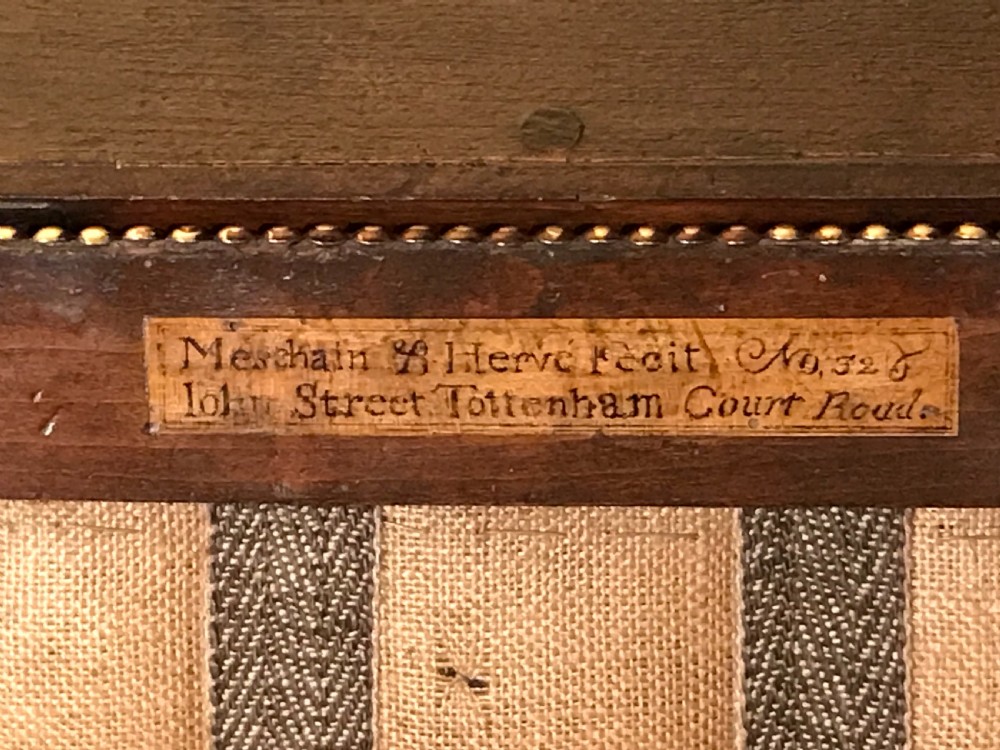 Meschain & Hervé Fecit No, 32
Iohn Street Tottenham Court Road.